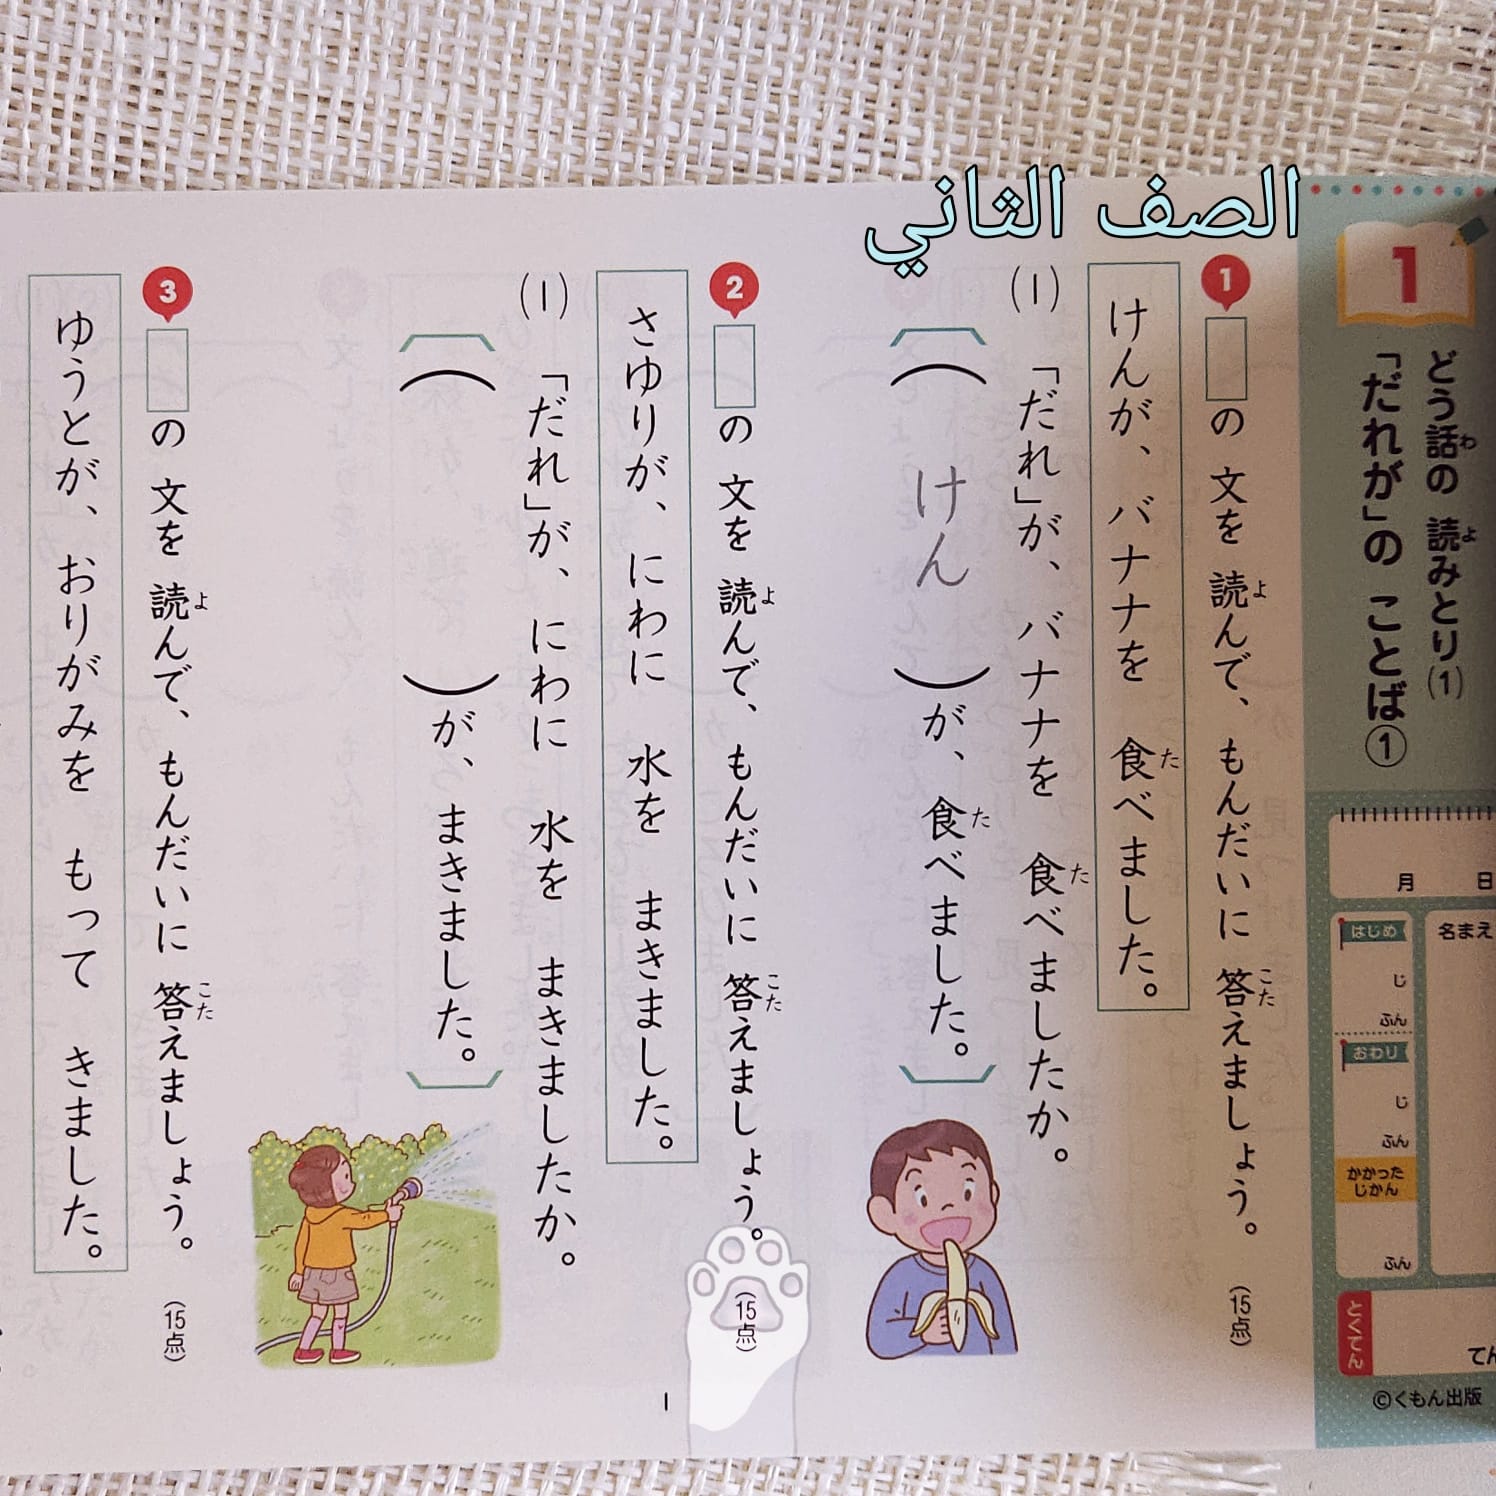 الصف الثاني
1
どう話の 読みとり(1)
わ
よ
「だれが」の ことば①
月 日
名まえ
はじめ
じ
ふん
おわり
じ
ふん
かかった
じかん
ふん
とくてん
てん
©くもん出版
1
の 文を 読んで、もんだいに 答えましょう。
よ
こた
(15点)
けんが、バナナを 食べました。
た
(1) 「だれ」が、バナナを 食べましたか。
た
( けん )が、食べました。
た
2
の 文を 読んで、もんだいに 答えましょう。
よ
こた
(15点)
さゆりが、にわに 水を まきました。
(1) 「だれ」が、にわに 水を まきましたか。
( )が、まきました。
3
の 文を 読んで、もんだいに 答えましょう。
よ
こた
(15点)
ゆうとが、おりがみを もって きました。
1